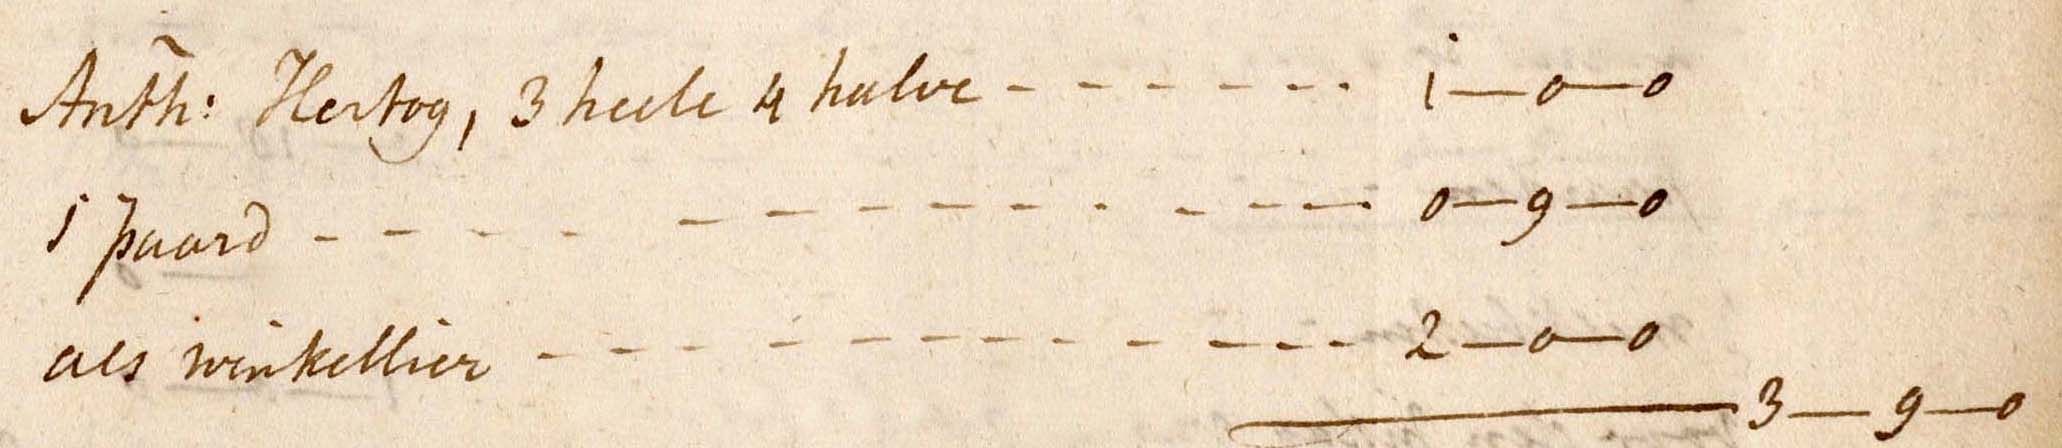 Anth: Hertog, 3 heele 4 halve - - - - - - - 1—0—0
1 paard - - - - - - - - - - - - - 0—9—0
als winkellier - - - - - - - - - - - - 2—0—0
3—9—0